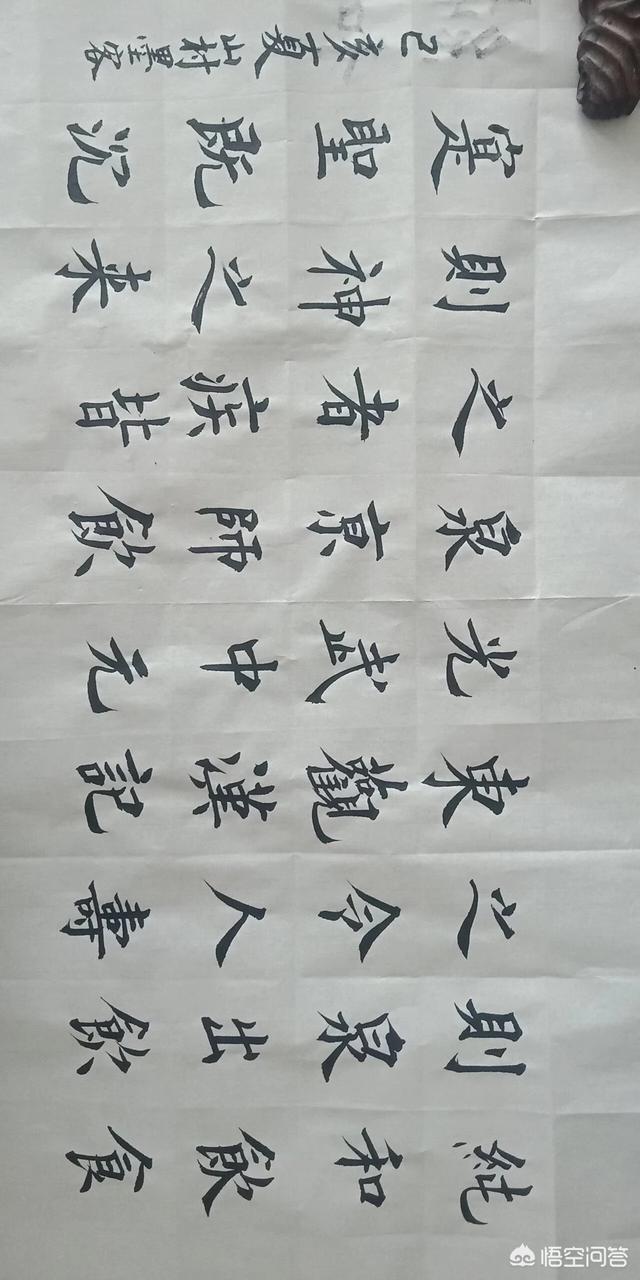 純和飲食
則泉出飲
之令人壽
東觀漢記
光武中元
泉京師飲
之者疾皆
則神之来
寔聖既沉
己亥夏山村墨客
悟空问答